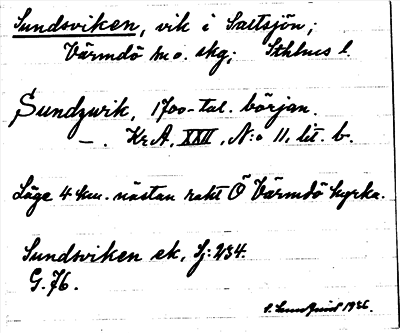 Sundsviken, vik i Saltsjön;
Värmdö sn o. skg; Sthlms l.
Sundzwik, 1700-tal. början.
—. Kr.A, XXII, N:o 11, lit. b.
Läge 4 km. nästan rakt Ö Värmdö kyrka.
Sundsviken ek. Sj: 234.
G. 76.
1936.